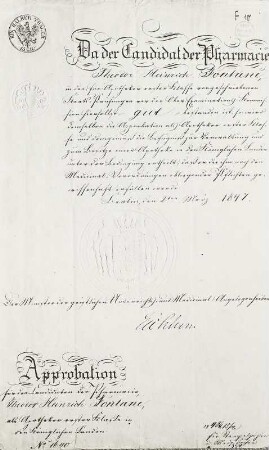 Da der Candidat der Pharmacie
Theodor Heinrich Fontane,
in den für Apotheker erster Classe vorgeschriebenen
Staats-Prüfungen vor der Ober-Examinations-Commis-
sion hierselbst gut bestanden ist, so wird
demselben die Approbation als Apotheker erster Clas-
se und demgemäß die Befugniß zur Verwaltung und
zum Besitze einer Apotheke in den Königlichen Landen
unter der Bedingung ertheilt, daß er die ihm nach den
Medicinal-Verordnungen obliegenden Pflichten ge-
wissenhaft erfüllen werde.
Berlin, den März 1847
Der Minister der geistlichen Unterrichts und Medicinal-Angelegenheiten
Eichhorn
Approbation
für den Candidaten der Pharmacie
Theodor Heinrich Fontane,
als Apotheker erster Classe in
den Königlichen Landen